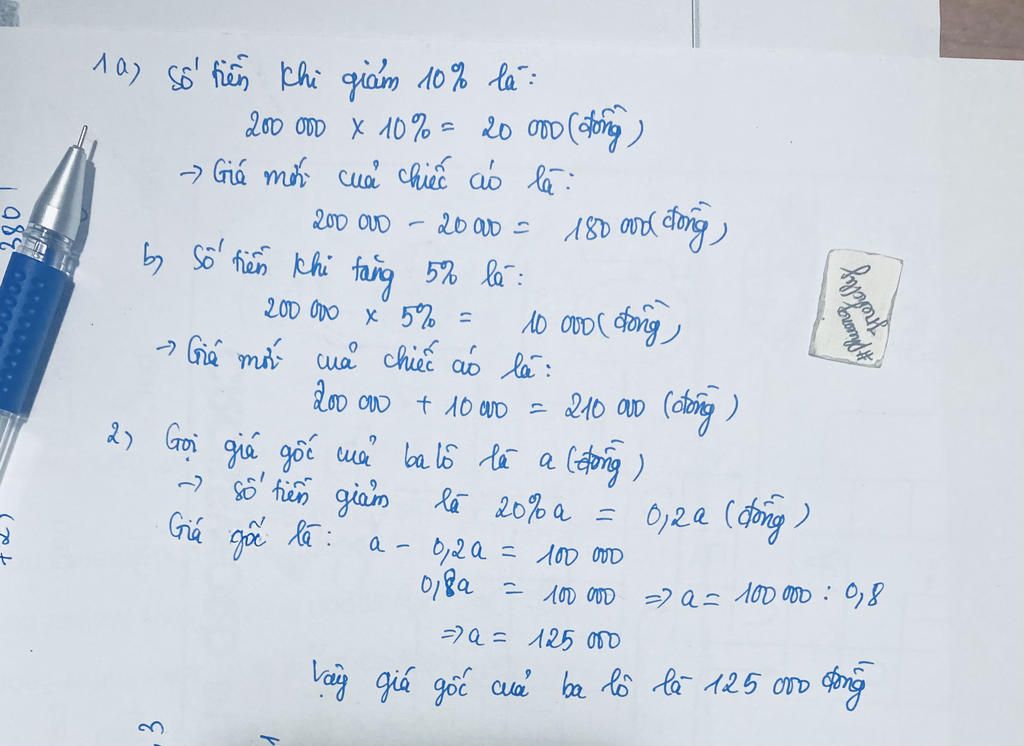 1a) Số tiền khi giảm 10% là:
200 000 x 10% = 20 000 (đồng)
→ Giá mới của chiếc áo là:
200 000 - 20 000 = 180 000 (đồng)
b) Số tiền khi tăng 5% là:
200 000 x 5% = 10 000 (đồng)
→ Giá mới của chiếc áo là:
200 000 + 10 000 = 210 000 (đồng)
2) Gọi giá gốc của ba lô là a (đồng)
→ Số tiền giảm là 20%a = 0,2a (đồng)
Giá gốc là: a - 0,2a = 100 000
0,8a = 100 000 => a = 100 000 : 0,8
=> a = 125 000
Vậy giá gốc của ba lô là 125 000 đồng
380
3